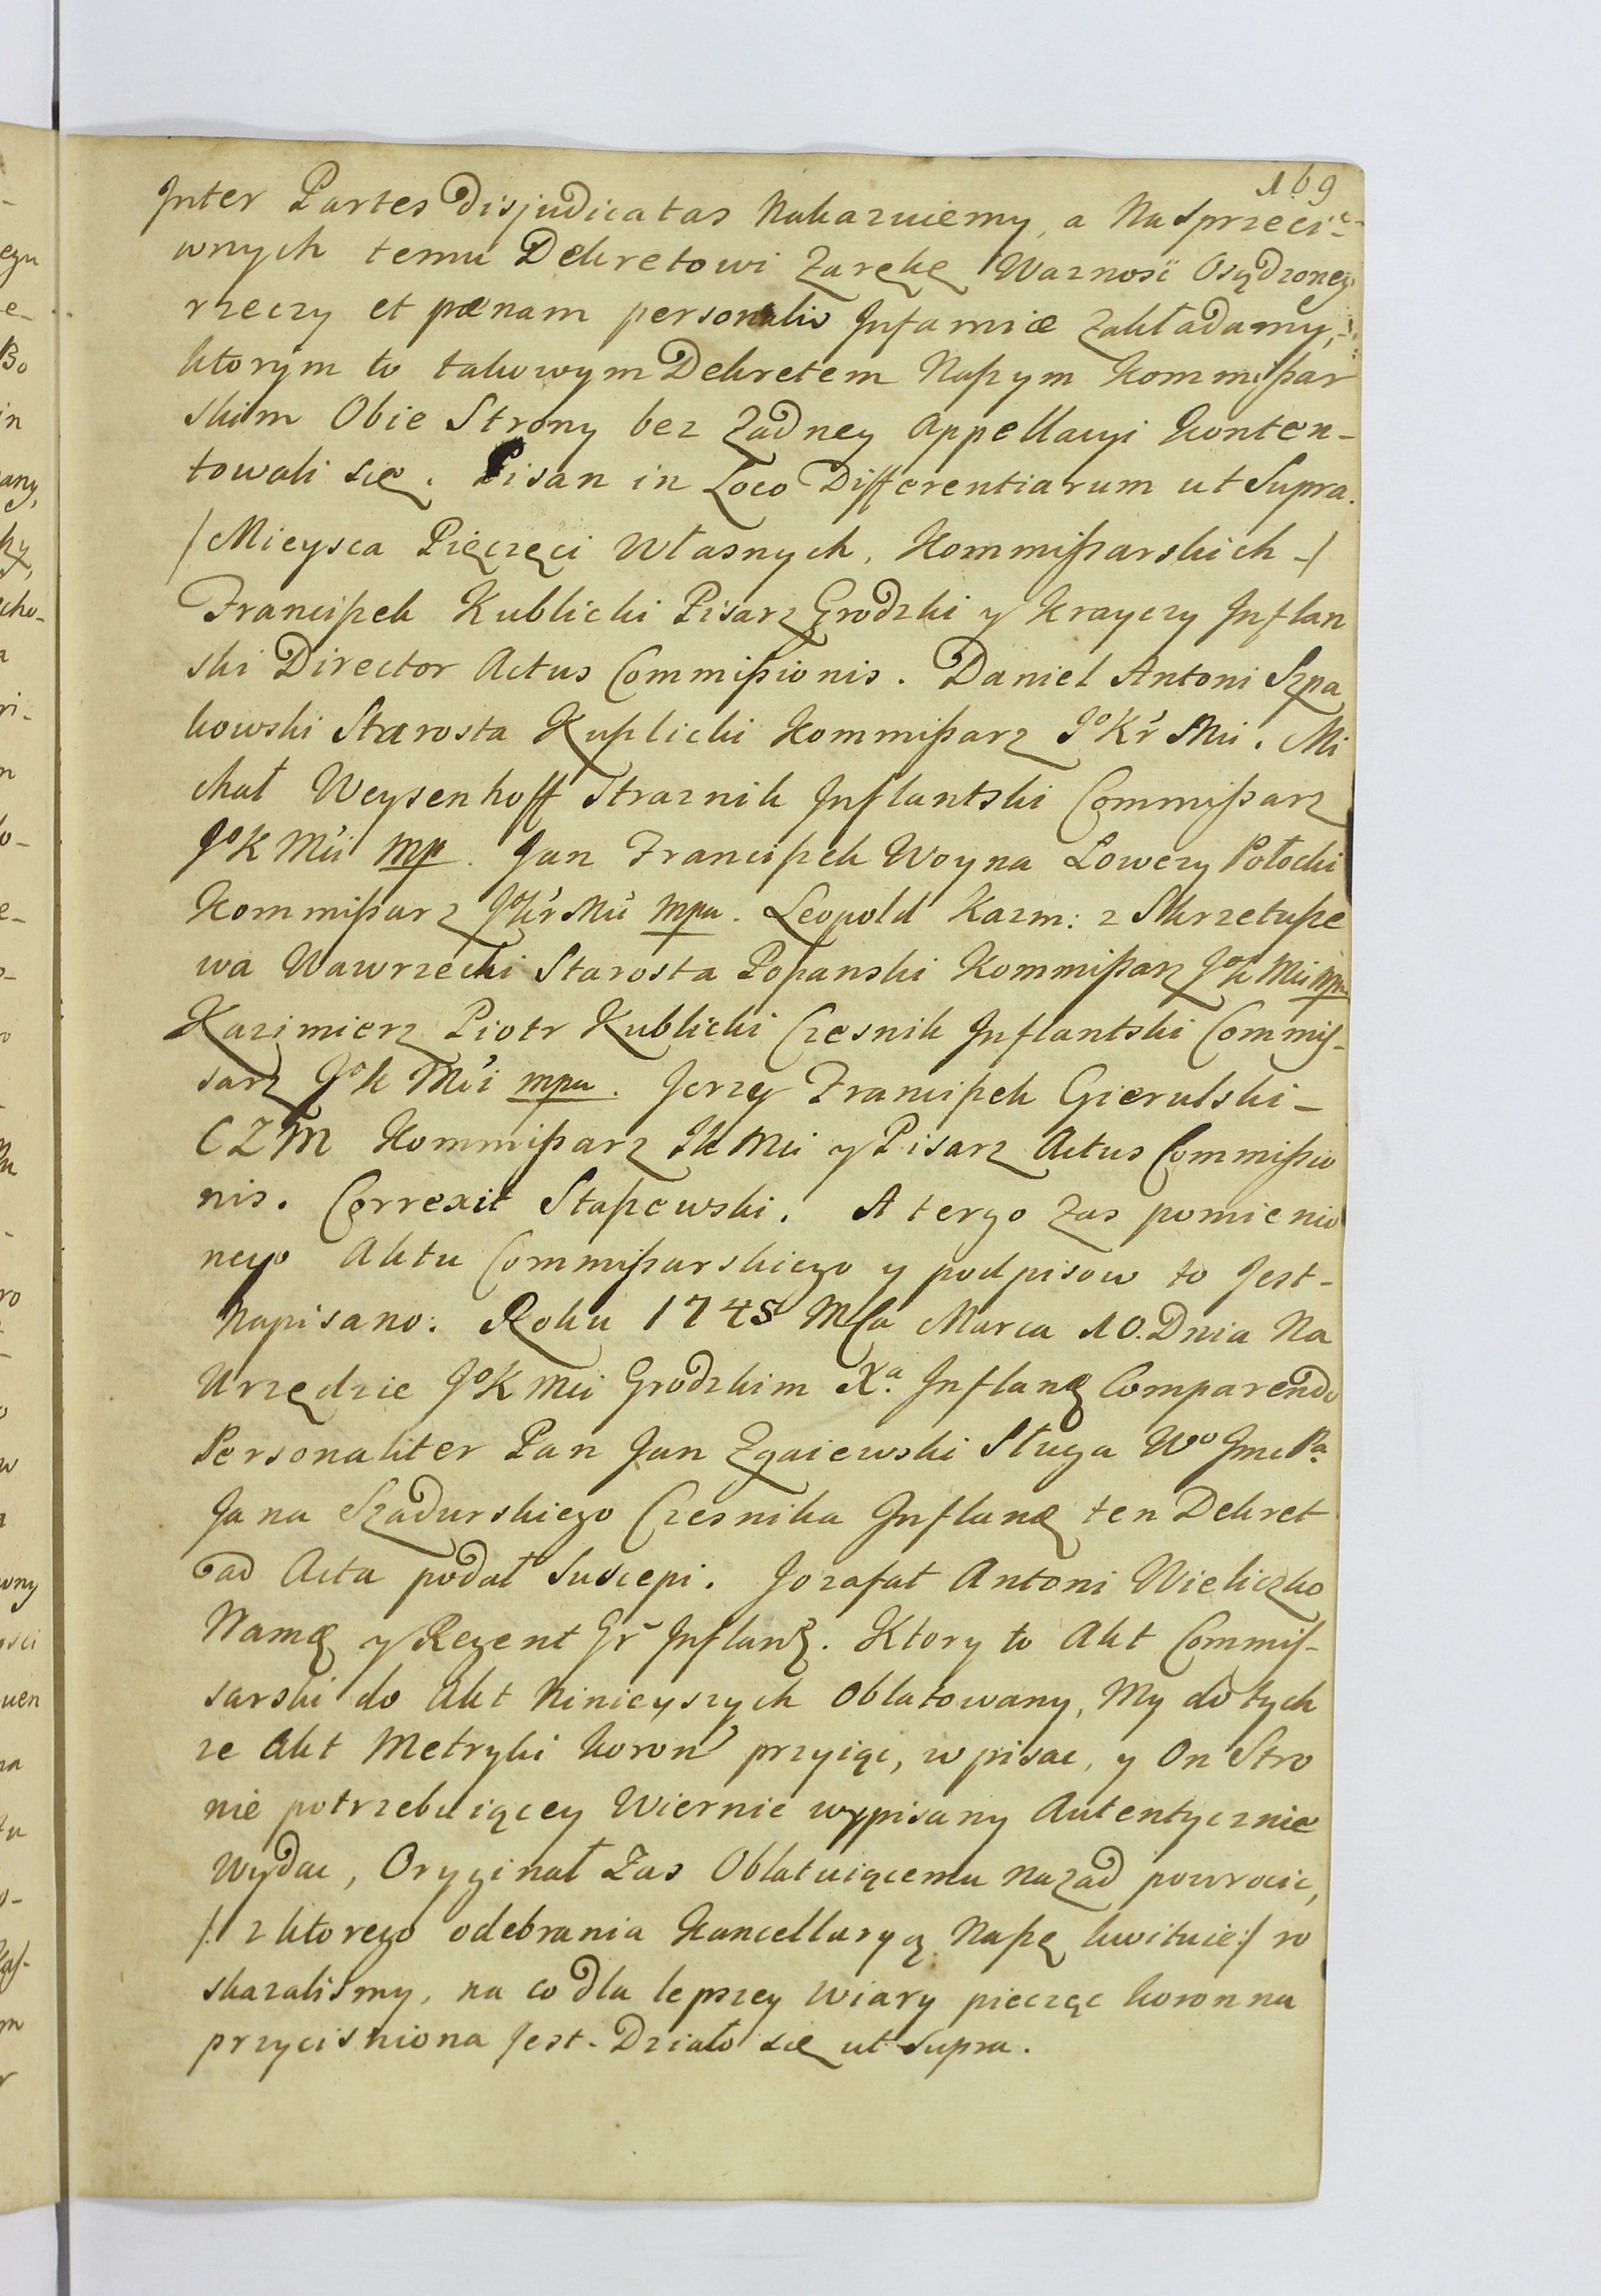 169
Inter Partes disjudicatas Nakazuiemy, a Na sprzeci-
wnych temu Dekretowi Zarękę Waznosc Osądzoney
rzeczy et pœnam personalis Infamiæ zakładamy,
ktorym to takowym Dekretem Naszym Kommißar
skim Obie Strony bez Zadney Appellacyi konten-
towali się. Pisan in Loco Differentiarum ut Supra.
/Mieysca Pięczęci Własnych, Kommißarskich-/
Franciszek Kublicki Pisarz Grodzki y Krayczy Inflan
ski Director Actus Commißionis. Daniel Antoni Szpa
kowski Starosta Kuplicki Kommißarz Jº Kr Mci. Mi
chał Weysenhoff Straznik Inflantski Commißarz
Jº K Mci mp. Jan Franciszek Woyna Lowczy Połocki
Kommißarz Jº Kr Mci mpa. Leopold Kazm: z Skrzetusze
wa Wawrzecki Starosta Poszanski Kommißarz Jº K Mci mpa
Kazimierz Piotr Kublicki Czesnik Inflantski Commis-
sarz Jº K Mci mpa. Jerzy Franciszek Gierulski-
C Z M Kommißarz J K Mci y Pisarz Actus Commißio
nis. Correxit Staszewski. A tergo zas pomienio
nego Aktu Commißarskiego y podpisow to jest-
Napisano: Roku 1745 Mca Marca 10. Dnia Na
Urzędzie Jº K Mci Grodzkim Xa. Inflan Comparendo
Personaliter Pan Jan Zgaiewski Sługa Wº Jmc Pa
Jana Szadurskiego Czesnika Inflan ten Dekret
ad Acta podał Suscepi. Jozafat Antoni Wieliczko
Namę y Regent Gr Inflan. Ktory to Akt Commis-
sarski do Akt Ninieyszych Oblatowany, My do tych
ze Akt Metryki koron przyiąc, wpisac, y On Stro
nie potrzebuiącey Wiernie wypisany Autentycznie
Wydac, Oryginał Zas Oblatuiącemu nazad powrocic,
/: z ktorego odebrania Kancellaryą Naszę kwituie:/ ro
skazalismy, na co dla lepszey wiary pieczęc koronna
przycisniona jest. Działo się ut Supra.